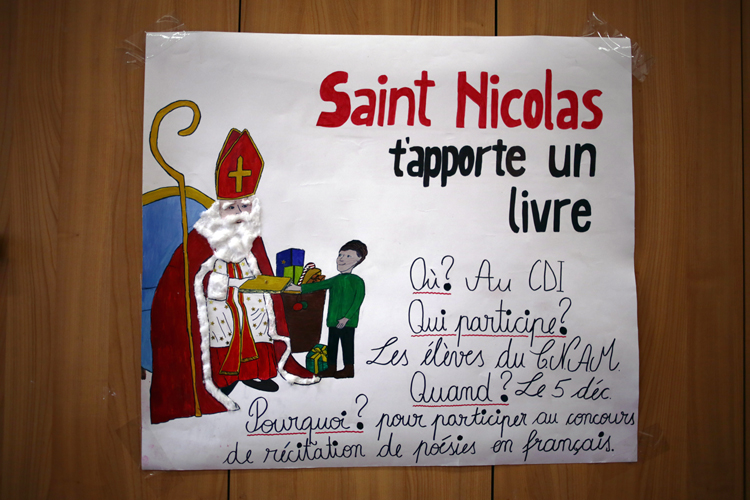 Saint Nicolas
t'apporte un
livre
Où? Au CDI
Qui participe?
Les élèves du CNAM.
Quand? Le 5 déc.
Pourquoi? pour participer au concours
de récitation de poésies en français.